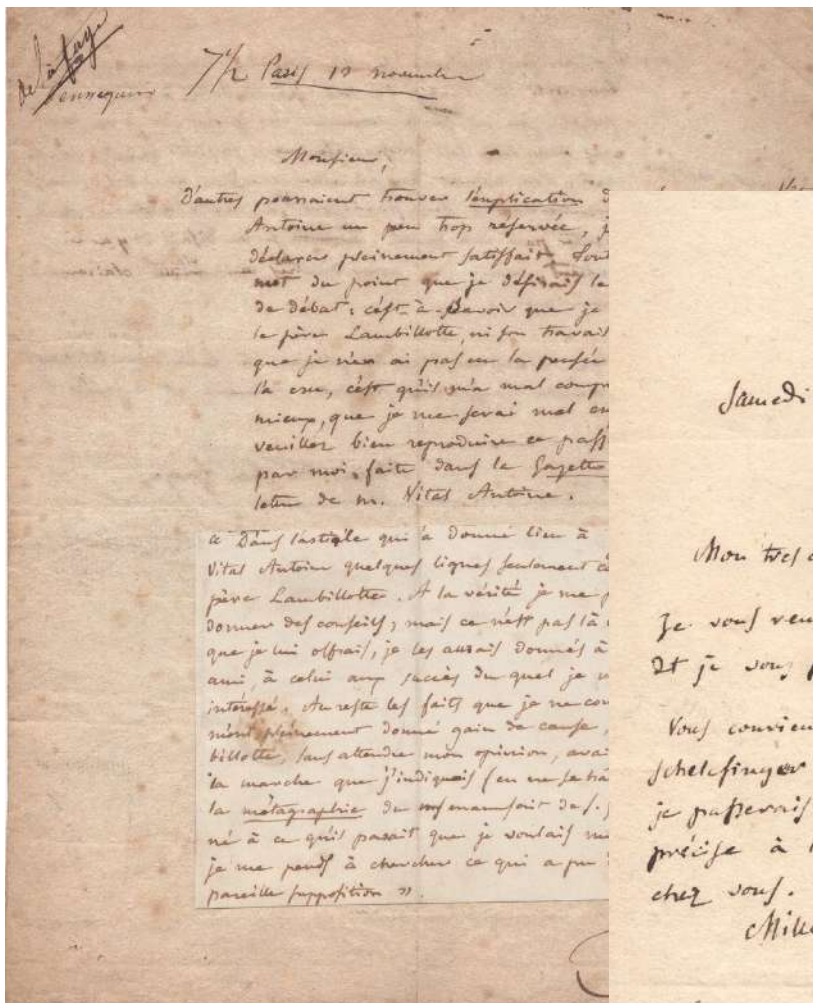 de la fage
7 1/2 Paris 18 novembre
Monsieur,
D'autres pourraient trouver l'explication d
Antoine un peu trop réservée, j
déclarer pleinement satisfait. Tout
mot du point que je désirais le
de débat: c'est à savoir que je
le père Lambillotte, ni son travail
que je n'en ai pas eu la pensée
l'a cru, c'est qu'il m'a mal comp
mieux, que je me serai mal en
veuillez bien reproduire ce pass
par moi, faite dans la Gazette
lettre de m. Vital Antoine.
« Dans l'article qui a donné lieu à
Vital Antoine quelques lignes seulement c
père Lambillotte. A la vérité je me p
donner des conseils; mais ce n'est pas là
que je lui offrais, je les aurais donnés à
ami, à celui aux succès du quel je
intéressé. Au reste les faits que je ne con
m'ont pleinement donné gain de cause,
billotte, sans attendre mon opinion, avai
la marche que j'indiquais (en ne se hâ
la métagraphie du manuscrit de S.
né à ce qu'il parait que je voulais
je me perds à chercher ce qui a pu
pareille supposition ».
Samedi
Mon tres c
Je vous
Et je vous
Vous convien
je passerais
précise à
chez vous.
Mille